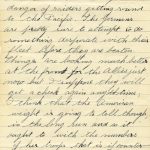 danger of raiders getting round
to the Pacific. The Germans
are pretty sure to attempt to do
something desperate with their
fleet before they are beaten
Things are looking much better
at the front for the Allies just
now but I suppose they will
get a check again sometime
I think that the American
weight is going to tell though
in the long run and it
ought to with the numbers
of her troops that is